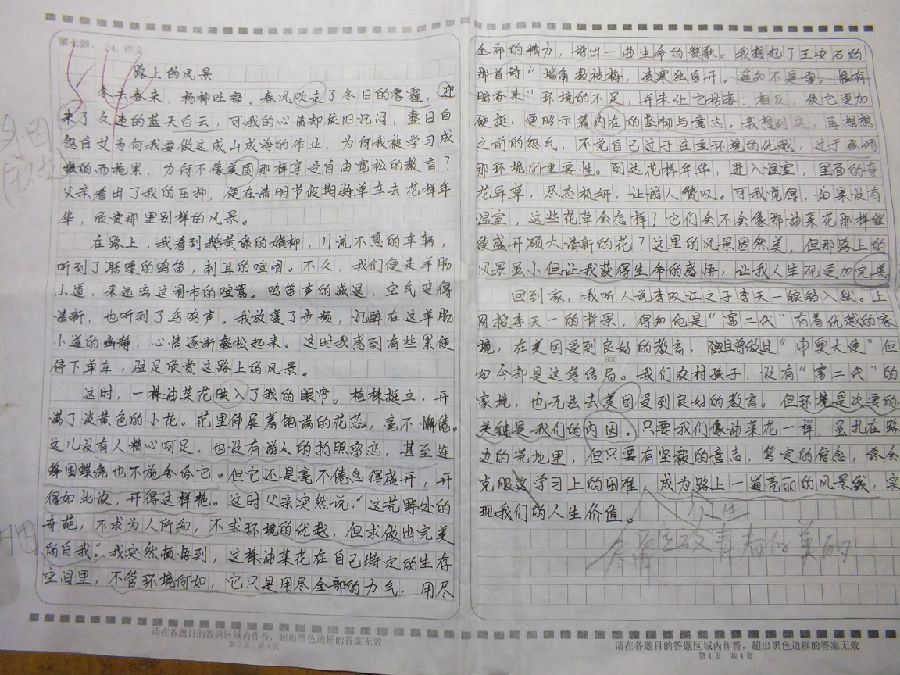 第七题：24. 作文
54
路上的风景
冬去春来，杨柳吐翠。春风吹走了冬日的雾霾，迎
来了久违的蓝天白云，可我的心情却依旧沉闷，整日自
怨自艾为何我要做这成山成海的作业，为何我被学习成
为何不像美国那样享受自由宽松的教育？
父亲看出了我的压抑，便在清明节假期骑单车去花样年
华，欣赏那里别样的风景。
在路上，我看到鹅黄绿的嫩柳，川流不息的车辆，
听到了聒噪的鸣笛，刺耳的喧闹。不久，我们便走羊肠
小道，来远离这闹市的喧嚣。鸣笛声的减退，空气变得
清新，也听到了鸟鸣声。我放慢了步频，沉醉在这羊肠
小道的幽静，心情逐渐轻松起来。这时我感到有些累便
停下单车，驻足欣赏这路上的风景。
这时，一株油菜花映入了我的眼帘。植株挺立，开
满了淡黄色的小花。花里伸展着饱满的花蕊，毫不懈倦。
这儿没有人精心呵护，也没有游人的拍照留恋，甚至连
蝴蝶也不施舍给它。但它还是毫不倦怠得盛开，开
得如此浓，开得这样艳。这时父亲突然说：“这荒野处的
奇葩，不求为人所知，不求环境的优越，但求做出完美
的自我。”我突然顿悟到，这株油菜花在自己特定的生存
空间里，不管环境何如，它只是用尽全部的力气，用尽
请在各题目的答题区域内作答，超出黑色边框的答案无效
第3页 共4页
全部的精力，谱出一曲生命的赞歌。我想起了王安石的
那首诗“墙角数枝梅，凌寒独自开。遥知不是雪，为有
暗香来”环境的不足，并未让它枯萎；相反，使它更加
硬挺，更昭示着内在的坚韧与意志。我想到这，再想想
之前的怨气，不觉自己过于注重环境的优越，过于强调
那环境的重要性。到达花样年华，进入温室，里面的奇
花异草，尽态极妍，让游人赞叹。可我觉得，如果没有
温室，这些花草会怎样？它们会不会像那油菜花那样继
续盛开硕大清新的花？这里的风景固然美，但那路上的
风景虽小但让我获得生命的感悟，让我人生观更加完善
回到家，我听人说李双江之子李天一锒铛入狱。上
网搜李天一的背景，得知他是“富二代”有着优越的家
境，在美国受到良好的教育，但
如今却是这等结局。我们农村孩子，没有“富二代”的
家境，也无法去美国受到良好的教育。但环境是次要的
关键是我们的内因。只要我们像油菜花一样，虽扎在路
边的荒地里，但只要有坚毅的意志，笃定的信念，
克服学习上的困难，成为路上一道亮丽的风景线，实
现我们的人生价值。
请在各题目的答题区域内作答，超出黑色边框的答案无效
第4页 共4页